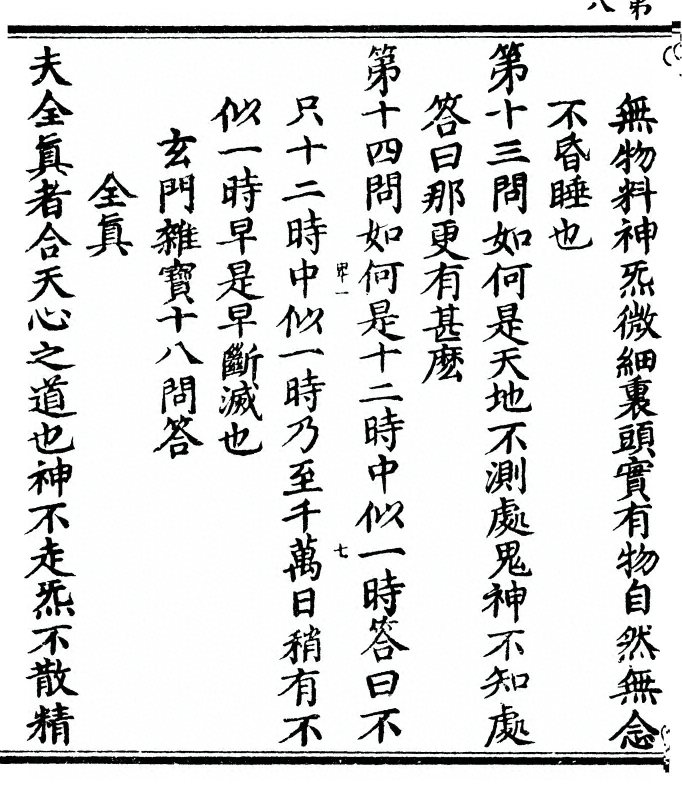 無物料神炁微細裏頭實有物自然無念
不昏睡也
第十三問如何是天地不測處鬼神不知處
答曰那更有甚麽
第十四問如何是十二時中似一時答曰不
只十二時中似一時乃至千萬日稍有不
似一時早是早斷滅也
玄門雜寶十八問答
全眞
夫全眞者合天心之道也神不走炁不散精